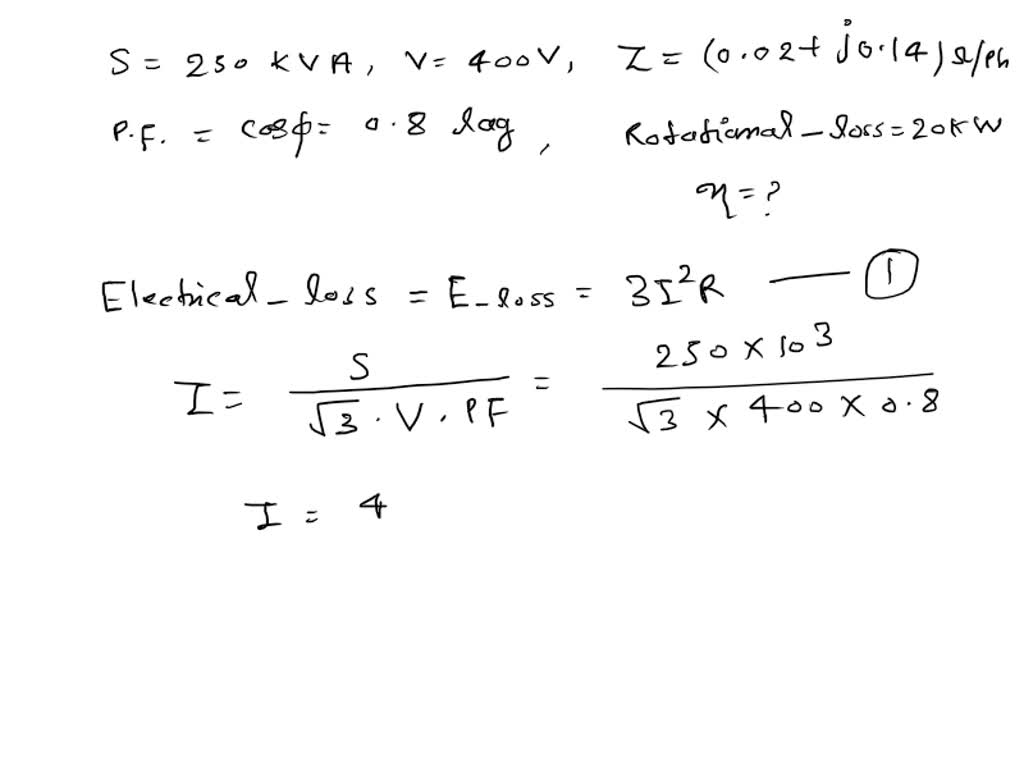 S = 250 KVA, V = 400V, Z = (0.02+j0.14) Ω/Ph
P.F. = cosφ = 0.8 lag, Rotational-loss = 20KW
η = ?
Electrical-loss = E-loss = 3I²R —— ①
I = S / √3 · V · PF = 250 × 10³ / √3 × 400 × 0.8
I = 4